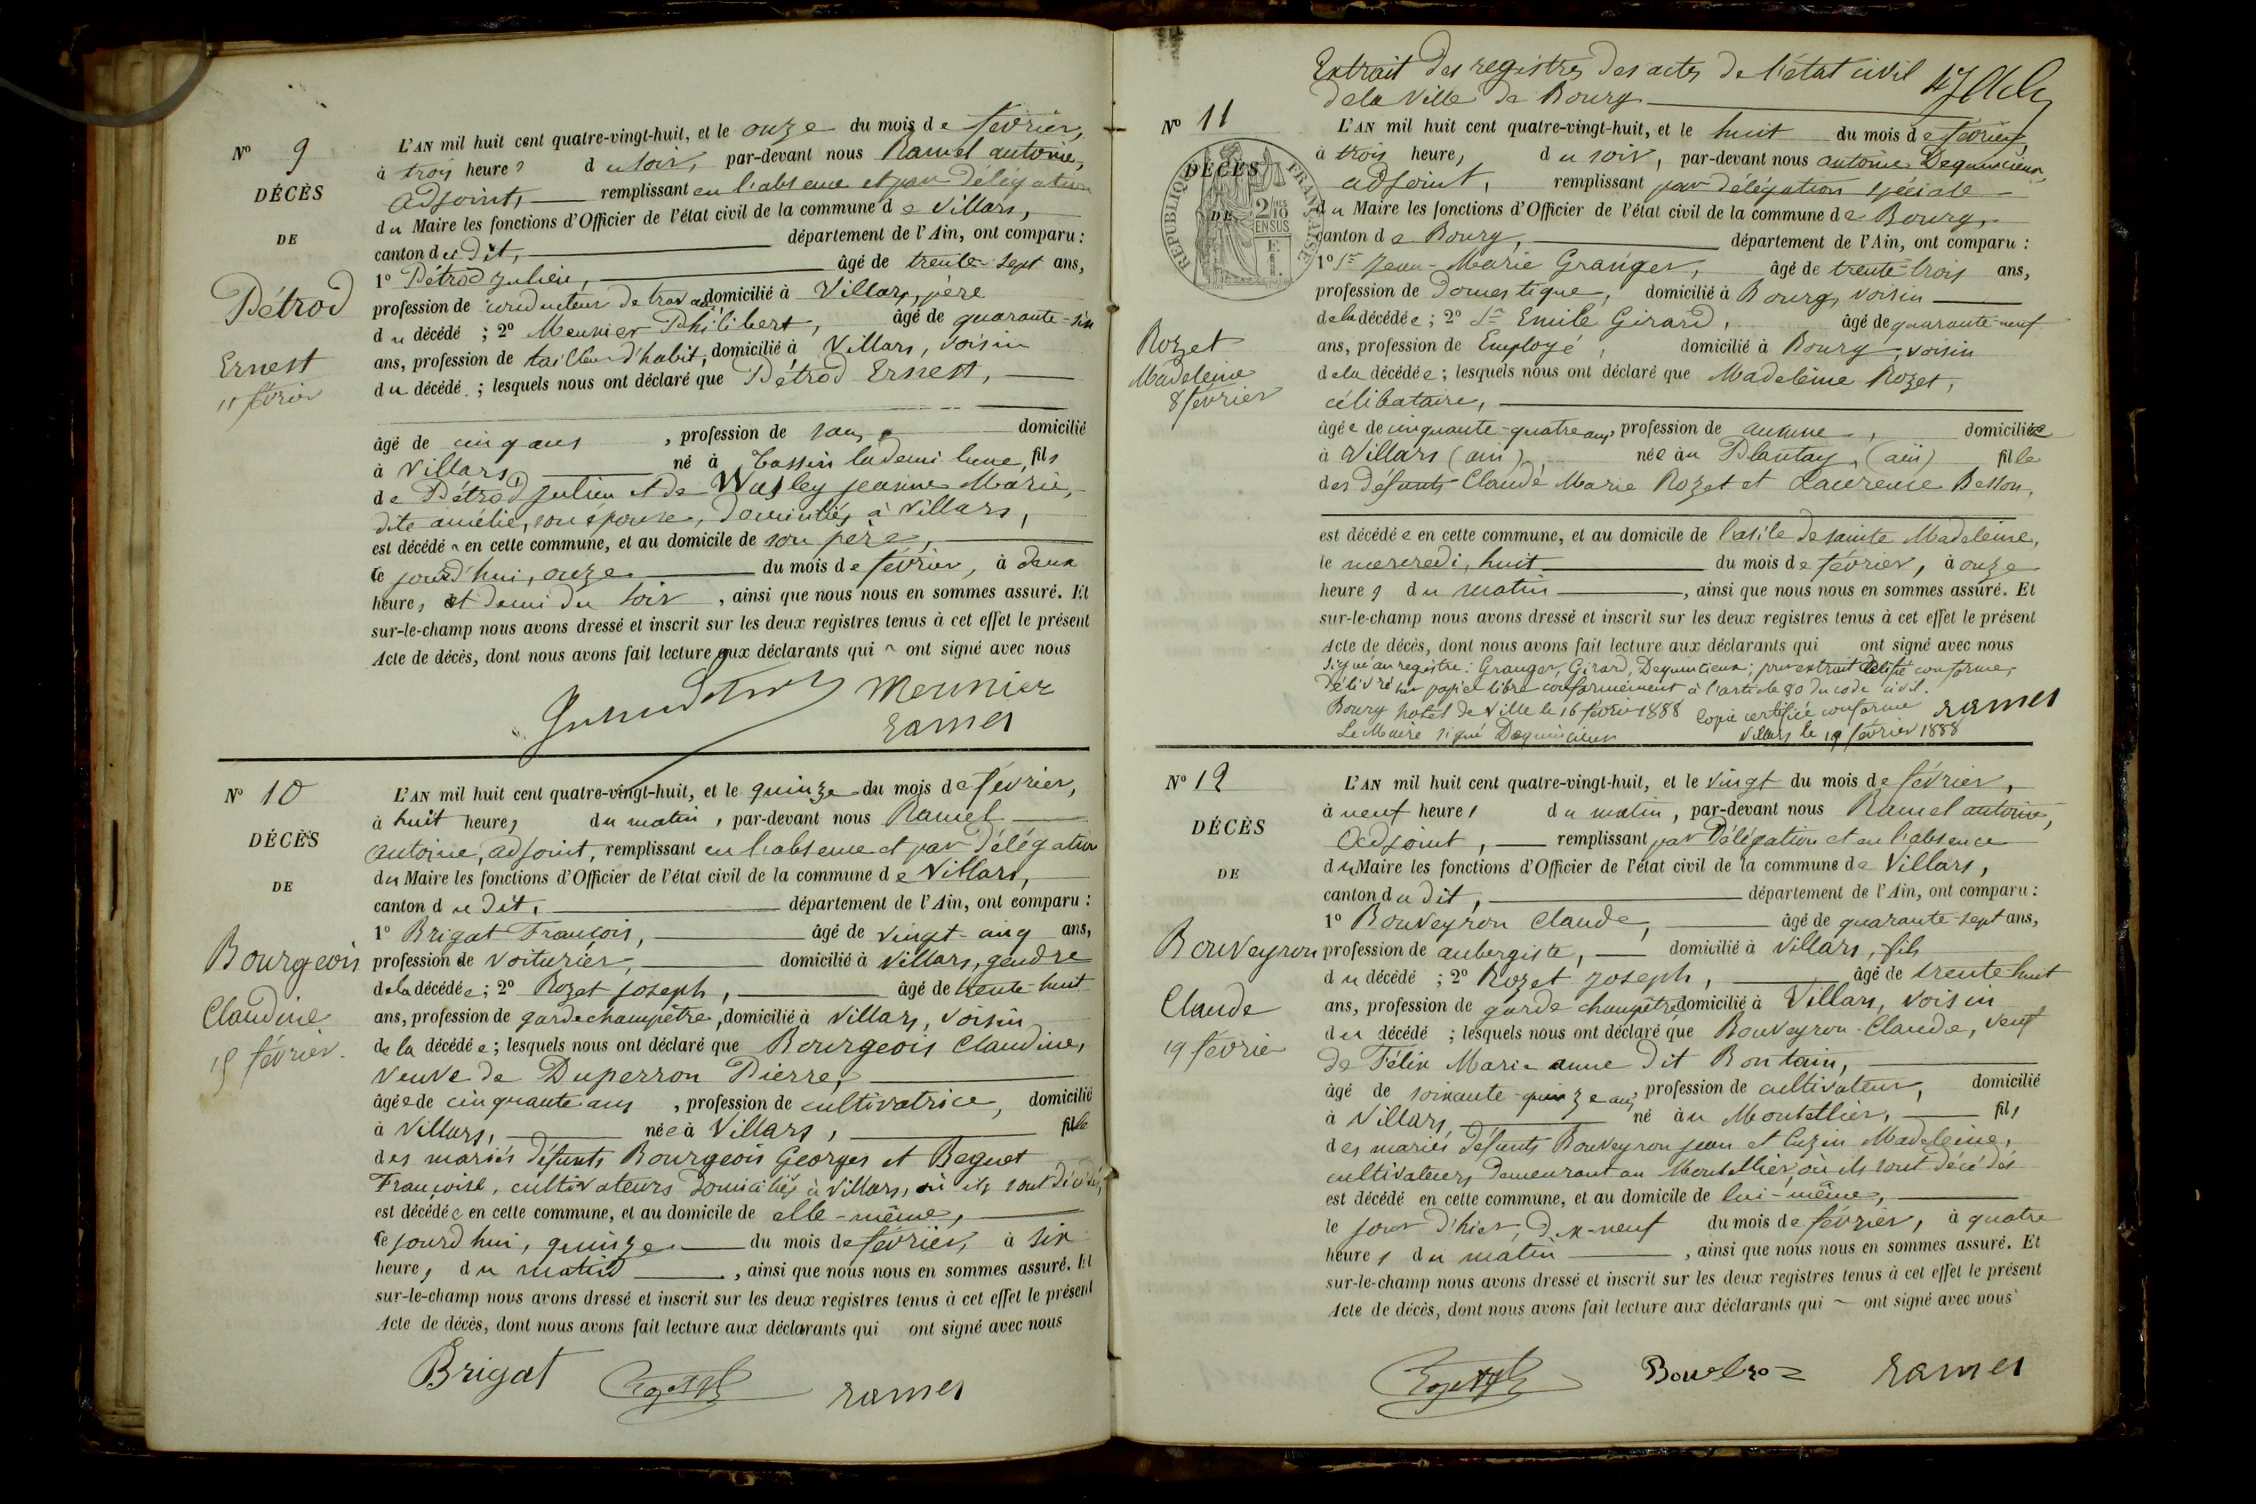 N° 9
DÉCÈS
DE
Pétrod
Ernest
11 février
L'AN mil huit cent quatre-vingt-huit, et le onze du mois de février,
à trois heures du soir, par-devant nous Ramel antoine,
adjoint, remplissant en l'absence et par délégation
du Maire les fonctions d'Officier de l'état civil de la commune de Villars,
canton dudit, département de l'Ain, ont comparu :
1° Pétrod Julien, âgé de trente-sept ans,
profession de conducteur de travaux domicilié à Villars, père
du décédé ; 2° Meunier Philibert, âgé de quarante-six
ans, profession de tailleur d'habit, domicilié à Villars, voisin
du décédé ; lesquels nous ont déclaré que Pétrod Ernest,
âgé de cinq ans, profession de sans, domicilié
à Villars, né à Tassin lademi lune, fils
de Pétrod Julien et de Wasley jeanne Marie,
dite amélie, son épouse, domiciliés à Villars,
est décédé en cette commune, et au domicile de son père,
ce jourd'hui, onze du mois de février, à deux
heures et demi du soir, ainsi que nous nous en sommes assuré. Et
sur-le-champ nous avons dressé et inscrit sur les deux registres tenus à cet effet le présent
Acte de décès, dont nous avons fait lecture aux déclarants qui ont signé avec nous
Meunier
ramel
N° 10
DÉCÈS
DE
Bourgeois
Claudine
15 février.
L'AN mil huit cent quatre-vingt-huit, et le quinze du mois de février,
à huit heures du matin, par-devant nous Ramel
antoine, adjoint, remplissant en l'absence et par délégation
du Maire les fonctions d'Officier de l'état civil de la commune de Villars,
canton dudit, département de l'Ain, ont comparu :
1° Brigat François, âgé de vingt-cinq ans,
profession de voiturier, domicilié à Villars, gendre
de la décédée ; 2° Rozet Joseph, âgé de trente-huit
ans, profession de garde champêtre, domicilié à Villars, voisin
de la décédée ; lesquels nous ont déclaré que Bourgeois Claudine,
veuve de Duperron Pierre,
âgée de cinquante ans, profession de cultivatrice, domicilié
à Villars, née à Villars, fille
des mariés défunts Bourgeois Georges et Beguet
Françoise, cultivateurs domiciliés à Villars, où ils sont décédés,
est décédée en cette commune, et au domicile de elle-même,
ce jourd'hui, quinze du mois de février, à six
heures du matin, ainsi que nous nous en sommes assuré. Et
sur-le-champ nous avons dressé et inscrit sur les deux registres tenus à cet effet le présent
Acte de décès, dont nous avons fait lecture aux déclarants qui ont signé avec nous
Brigat ramel
Extrait des registres des actes de l'état civil
de la Ville de Bourg
N° 11
DÉCÈS
DE
RÉPUBLIQUE FRANÇAISE
Rozet
Madeleine
8 février
L'AN mil huit cent quatre-vingt-huit, et le huit du mois de février,
à trois heures, du soir, par-devant nous antoine Dequincieux,
adjoint, remplissant par délégation spéciale
du Maire les fonctions d'Officier de l'état civil de la commune de Bourg,
canton de Bourg, département de l'Ain, ont comparu :
1° Sr Jean-Marie Granger, âgé de trente-trois ans,
profession de domestique, domicilié à Bourg, voisin
de la décédée ; 2° Sr Emile Girard, âgé de quarante-neuf
ans, profession de Employé, domicilié à Bourg, voisin
de la décédée ; lesquels nous ont déclaré que Madeleine Rozet,
célibataire,
âgée de cinquante-quatre ans, profession de aucune, domiciliée
à Villars (ain), née au Plantay, (ain) fille
des défunts Claude Marie Rozet et Laurence Besson,
est décédée en cette commune, et au domicile de l'asile de sainte Madeleine,
le mercredi, huit du mois de février, à onze
heures du matin, ainsi que nous nous en sommes assuré. Et
sur-le-champ nous avons dressé et inscrit sur les deux registres tenus à cet effet le présent
Acte de décès, dont nous avons fait lecture aux déclarants qui ont signé avec nous
Signé au registre : Granger, Girard, Dequincieux ; pour extrait conforme,
Délivré sur papier libre conformément à l'article 80 du code civil.
Bourg hotel de Ville le 16 février 1888 Copie certifiée conforme ramel
Le Maire signé Dequincieux Villars le 19 février 1888
N° 12
DÉCÈS
DE
Bouveyron
Claude
19 février
L'AN mil huit cent quatre-vingt-huit, et le vingt du mois de février,
à neuf heures du matin, par-devant nous Ramel antoine,
adjoint, remplissant par délégation et en l'absence
du Maire les fonctions d'Officier de l'état civil de la commune de Villars,
canton dudit, département de l'Ain, ont comparu :
1° Bouveyron Claude, âgé de quarante-sept ans,
profession de aubergiste, domicilié à Villars, fils
du décédé ; 2° Rozet Joseph, âgé de trente-huit
ans, profession de garde champêtre, domicilié à Villars, voisin
du décédé ; lesquels nous ont déclaré que Bouveyron Claude, veuf
de Félix Marie anne dit Bontain,
âgé de soixante-quinze ans, profession de cultivateur, domicilié
à Villars, né au Montellier, fils
des mariés défunts Bouveyron jean et Cuzin Madeleine,
cultivateurs, demeurant au Montellier où ils sont décédés
est décédé en cette commune, et au domicile de lui-même,
le jour d'hier, dix-neuf du mois de février, à quatre
heures du matin, ainsi que nous nous en sommes assuré. Et
sur-le-champ nous avons dressé et inscrit sur les deux registres tenus à cet effet le présent
Acte de décès, dont nous avons fait lecture aux déclarants qui ont signé avec nous
ramel